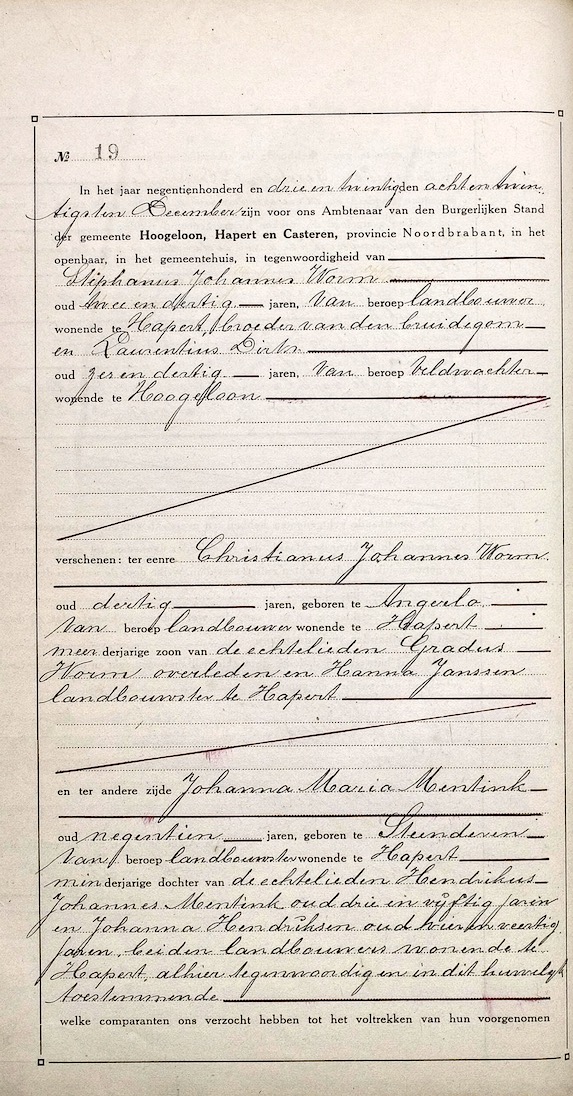 № 19
In het jaar negentienhonderd en drie en twintig den acht en twin
tigsten December zijn voor ons Ambtenaar van den Burgerlijken Stand
der gemeente Hoogeloon, Hapert en Casteren, provincie Noordbrabant, in het
openbaar, in het gemeentehuis, in tegenwoordigheid van
Stephanus Johannes Worm
oud twee en dertig jaren, van beroep landbouwer
wonende te Hapert, broeder van den bruidegom
en Laurentius Dirks
oud zes en dertig jaren, van beroep veldwachter
wonende te Hoogeloon
verschenen: ter eenre Christianus Johannes Worm
oud dertig jaren, geboren te Angerlo
van beroep landbouwer wonende te Hapert
meerderjarige zoon van de echtelieden Gradus
Worm overleden en Hanna Janssen
landbouwster te Hapert
en ter andere zijde Johanna Maria Mentink
oud negentien jaren, geboren te Steenderen
van beroep landbouwster wonende te Hapert
minderjarige dochter van de echtelieden Hendrikus
Johannes Mentink oud drie en vijftig jaren
en Johanna Hendriksen oud vier en veertig
jaren, beiden landbouwers wonende te
Hapert, alhier tegenwoordig en in dit huwelijk
toestemmende
welke comparanten ons verzocht hebben tot het voltrekken van hun voorgenomen